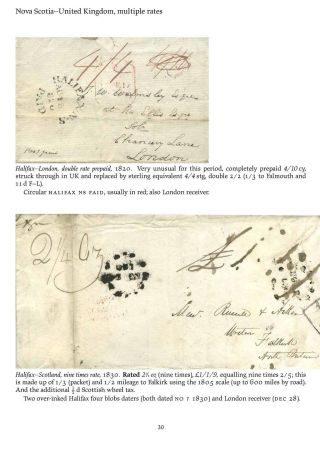 Nova Scotia–United Kingdom, multiple rates
PAID
HALIFAX N.S.
4/4
at
Chancery Lane
London
Halifax–London, double rate prepaid, 1820. Very unusual for this period, completely prepaid 4/10 cy,
struck through in UK and replaced by sterling equivalent 4/4 stg, double 2/2 (1/3 to Falmouth and
11 d F–L).
Circular HALIFAX NS PAID, usually in red; also London receiver.
2¼ Oz
Falkirk
North Britain
Halifax–Scotland, nine times rate, 1830. Rated 2¼ oz (nine times), £1/1/9, equalling nine times 2/5; this
is made up of 1/3 (packet) and 1/2 mileage to Falkirk using the 1805 scale (up to 600 miles by road).
And the additional ½ d Scottish wheel tax.
Two over-inked Halifax four blobs daters (both dated NO 7 1830) and London receiver (DEC 28).
20